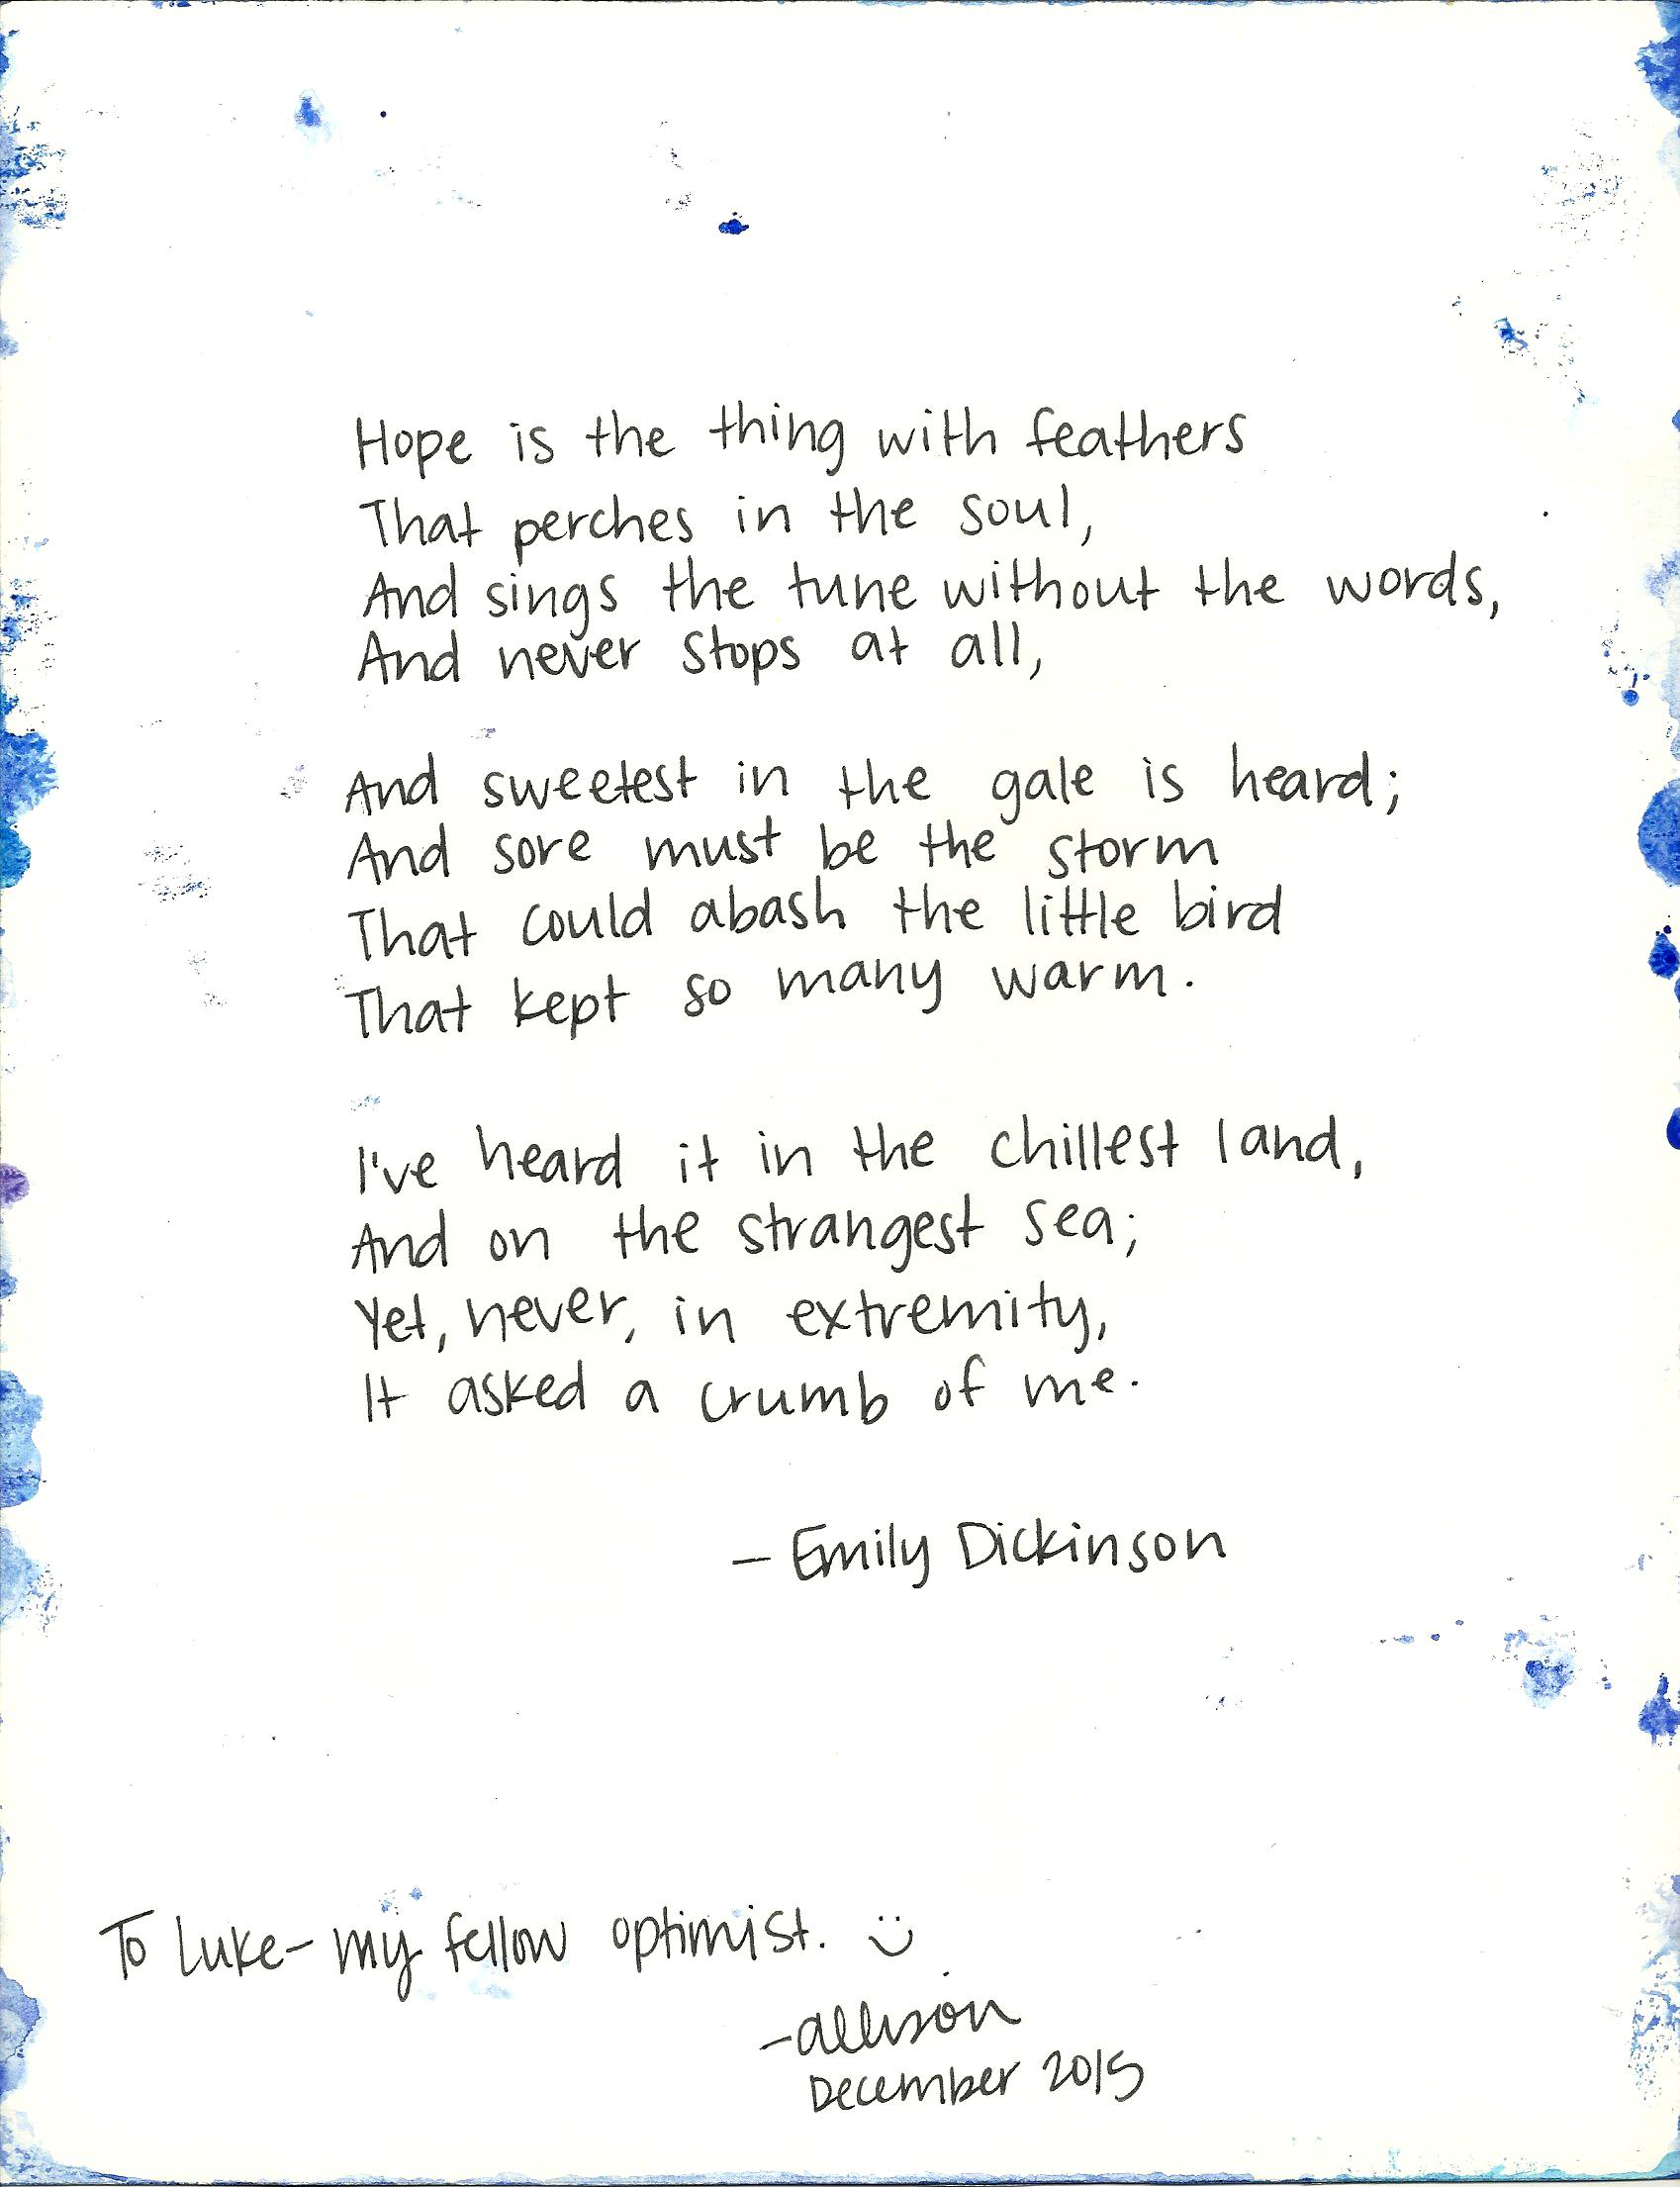 Hope is the thing with feathers
That perches in the soul,
And sings the tune without the words,
And never stops at all,
And sweetest in the gale is heard;
And sore must be the storm
That could abash the little bird
That kept so many warm.
I've heard it in the chillest land,
And on the strangest sea;
Yet, never, in extremity,
It asked a crumb of me.
– Emily Dickinson
To Luke- my fellow optimist. :)
-allison
December 2015